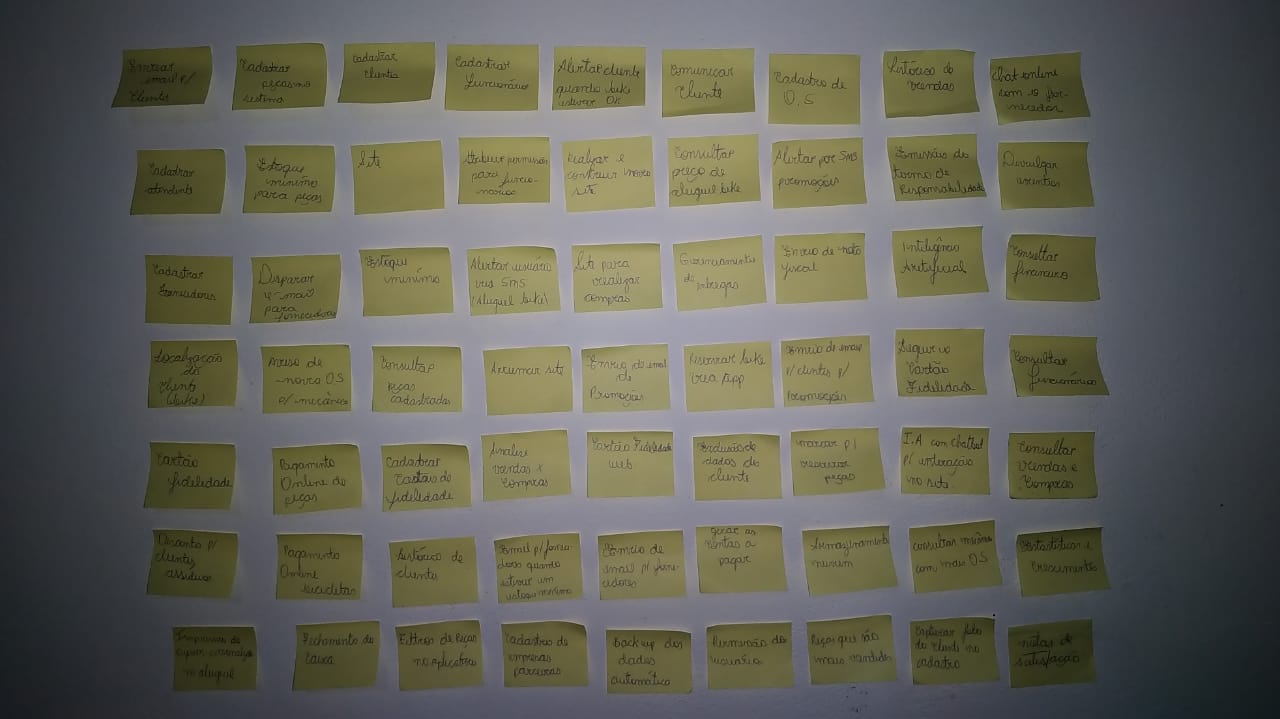 Enviar
email p/
Clientes
Cadastrar
peças no
sistema
Cadastrar
Cliente
Cadastrar
funcionário
Alertar cliente
quando bike
estiver OK
Comunicar
Cliente
Cadastro de
O.S
Histórico de
vendas
Chat online
com o for-
necedor
Cadastrar
atendente
Estoque
mínimo
para peças
Site
permissão
para funcio-
nários
Realizar e
construir novo
site
Consultar
preço de
aluguel bike
Alertar por SMS
promoções
Emissão do
termo de
Responsabilidade
Divulgar
eventos
Cadastrar
fornecedores
Disparar
e-mail
para
fornecedores
Estoque
mínimo
Alertar usuário
via SMS
(Aluguel bike)
Site para
realizar
compras
Gerenciamento
de entregas
Envio de nota
fiscal
Inteligência
Artificial
Consultar
financeiro
Localização
do
Cliente
(bike)
Aviso de
nova OS
p/ mecânico
Consultar
peças
cadastradas
Arrumar site
Envio de email
de
Promoções
Reservar bike
via app
Envio de email
p/ clientes p/
Promoções
Cartão
Fidelidade
Consultar
funcionários
Cartão
fidelidade
Pagamento
Online de
peças
Cadastrar
Cartão de
fidelidade
Analise
vendas x
Compras
Cartão Fidelidade
web
Exclusão de
dados do
cliente
p/
peças
I.A com chatbot
p/ interação
no site.
Consultar
Vendas e
Compras
Desconto p/
clientes
assíduos
Pagamento
Online
bicicletas
Histórico de
clientes
Email p/ forne-
cedores quando
estiver um
estoque mínimo
Envio de
email p/ forne-
cedores
gerar as
contas a
pagar
Armazenamento
nuvem
consultar
com mais OS
Estatísticas e
Crescimento
aluguel
Fechamento de
Caixa
Filtros de Peças
no aplicativo
Cadastros de
empresas
parceiras
Backup dos
dados
automático
Permissão de
usuário
Peças que são
mais vendidas
Capturar foto
do cliente no
cadastro
notas de
satisfação